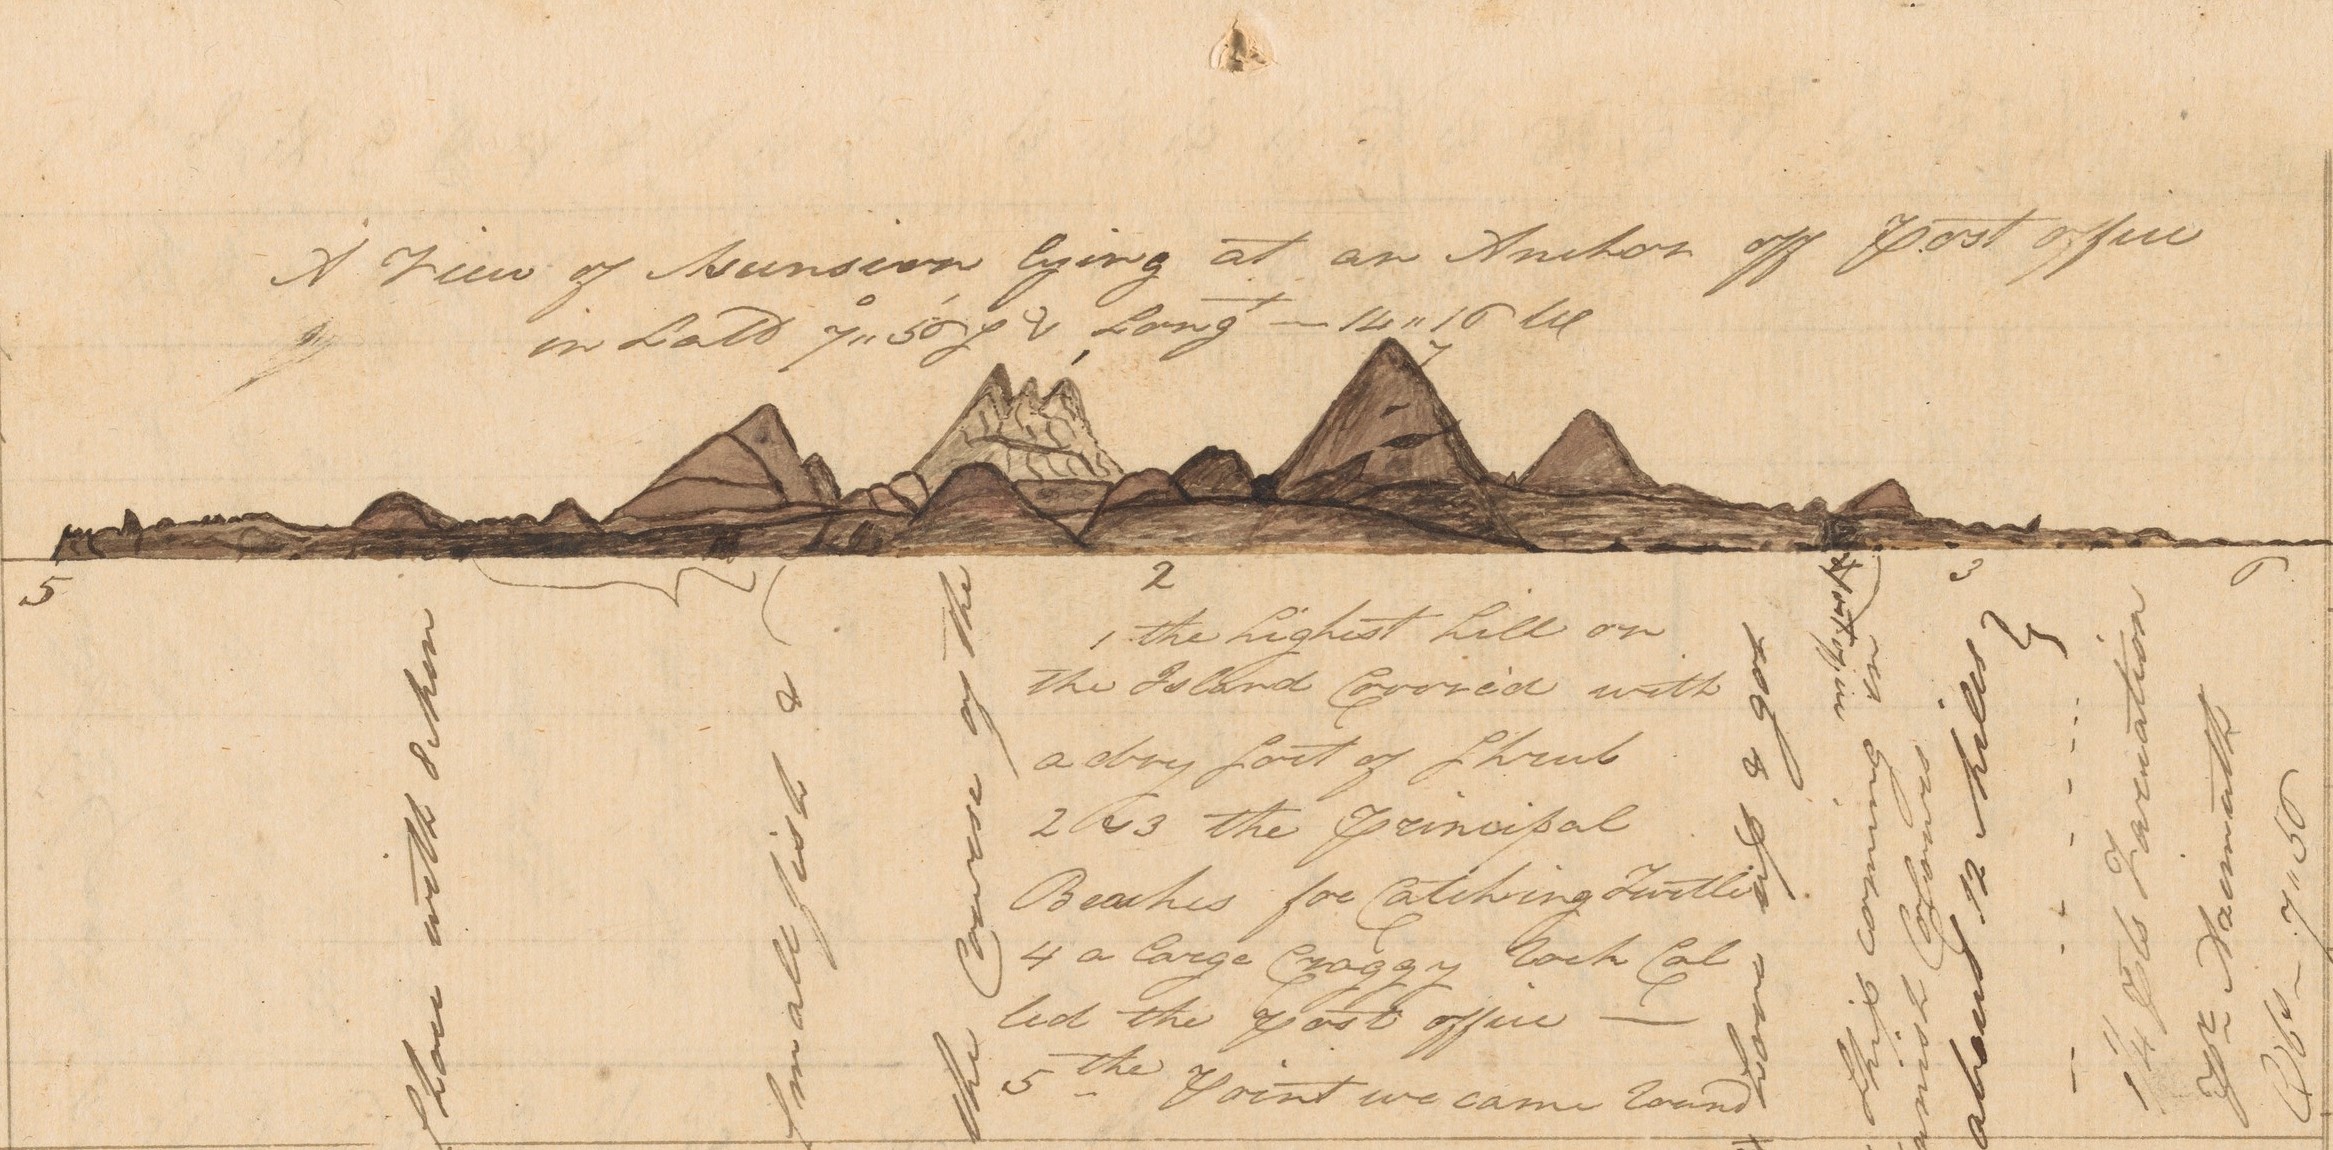 A View of Asunsion lying at an Anchor off Post office
in Lattd 7"56 S & Longt — 14"16 W
1
7
5
2
4
3
6
1 the highest hill on
the Island Covored with
a dry sort of shrub
2 & 3 the Principal
Beaches for Catching Turtle
4 a large Craggy Rock Cal
led the Post office —
5 the Point we came round
than with when
small fish &
the Course of the
& got
Ship coming in
about 12 Miles
Pr Variation
Pr Azimuth
Obs — 7"56